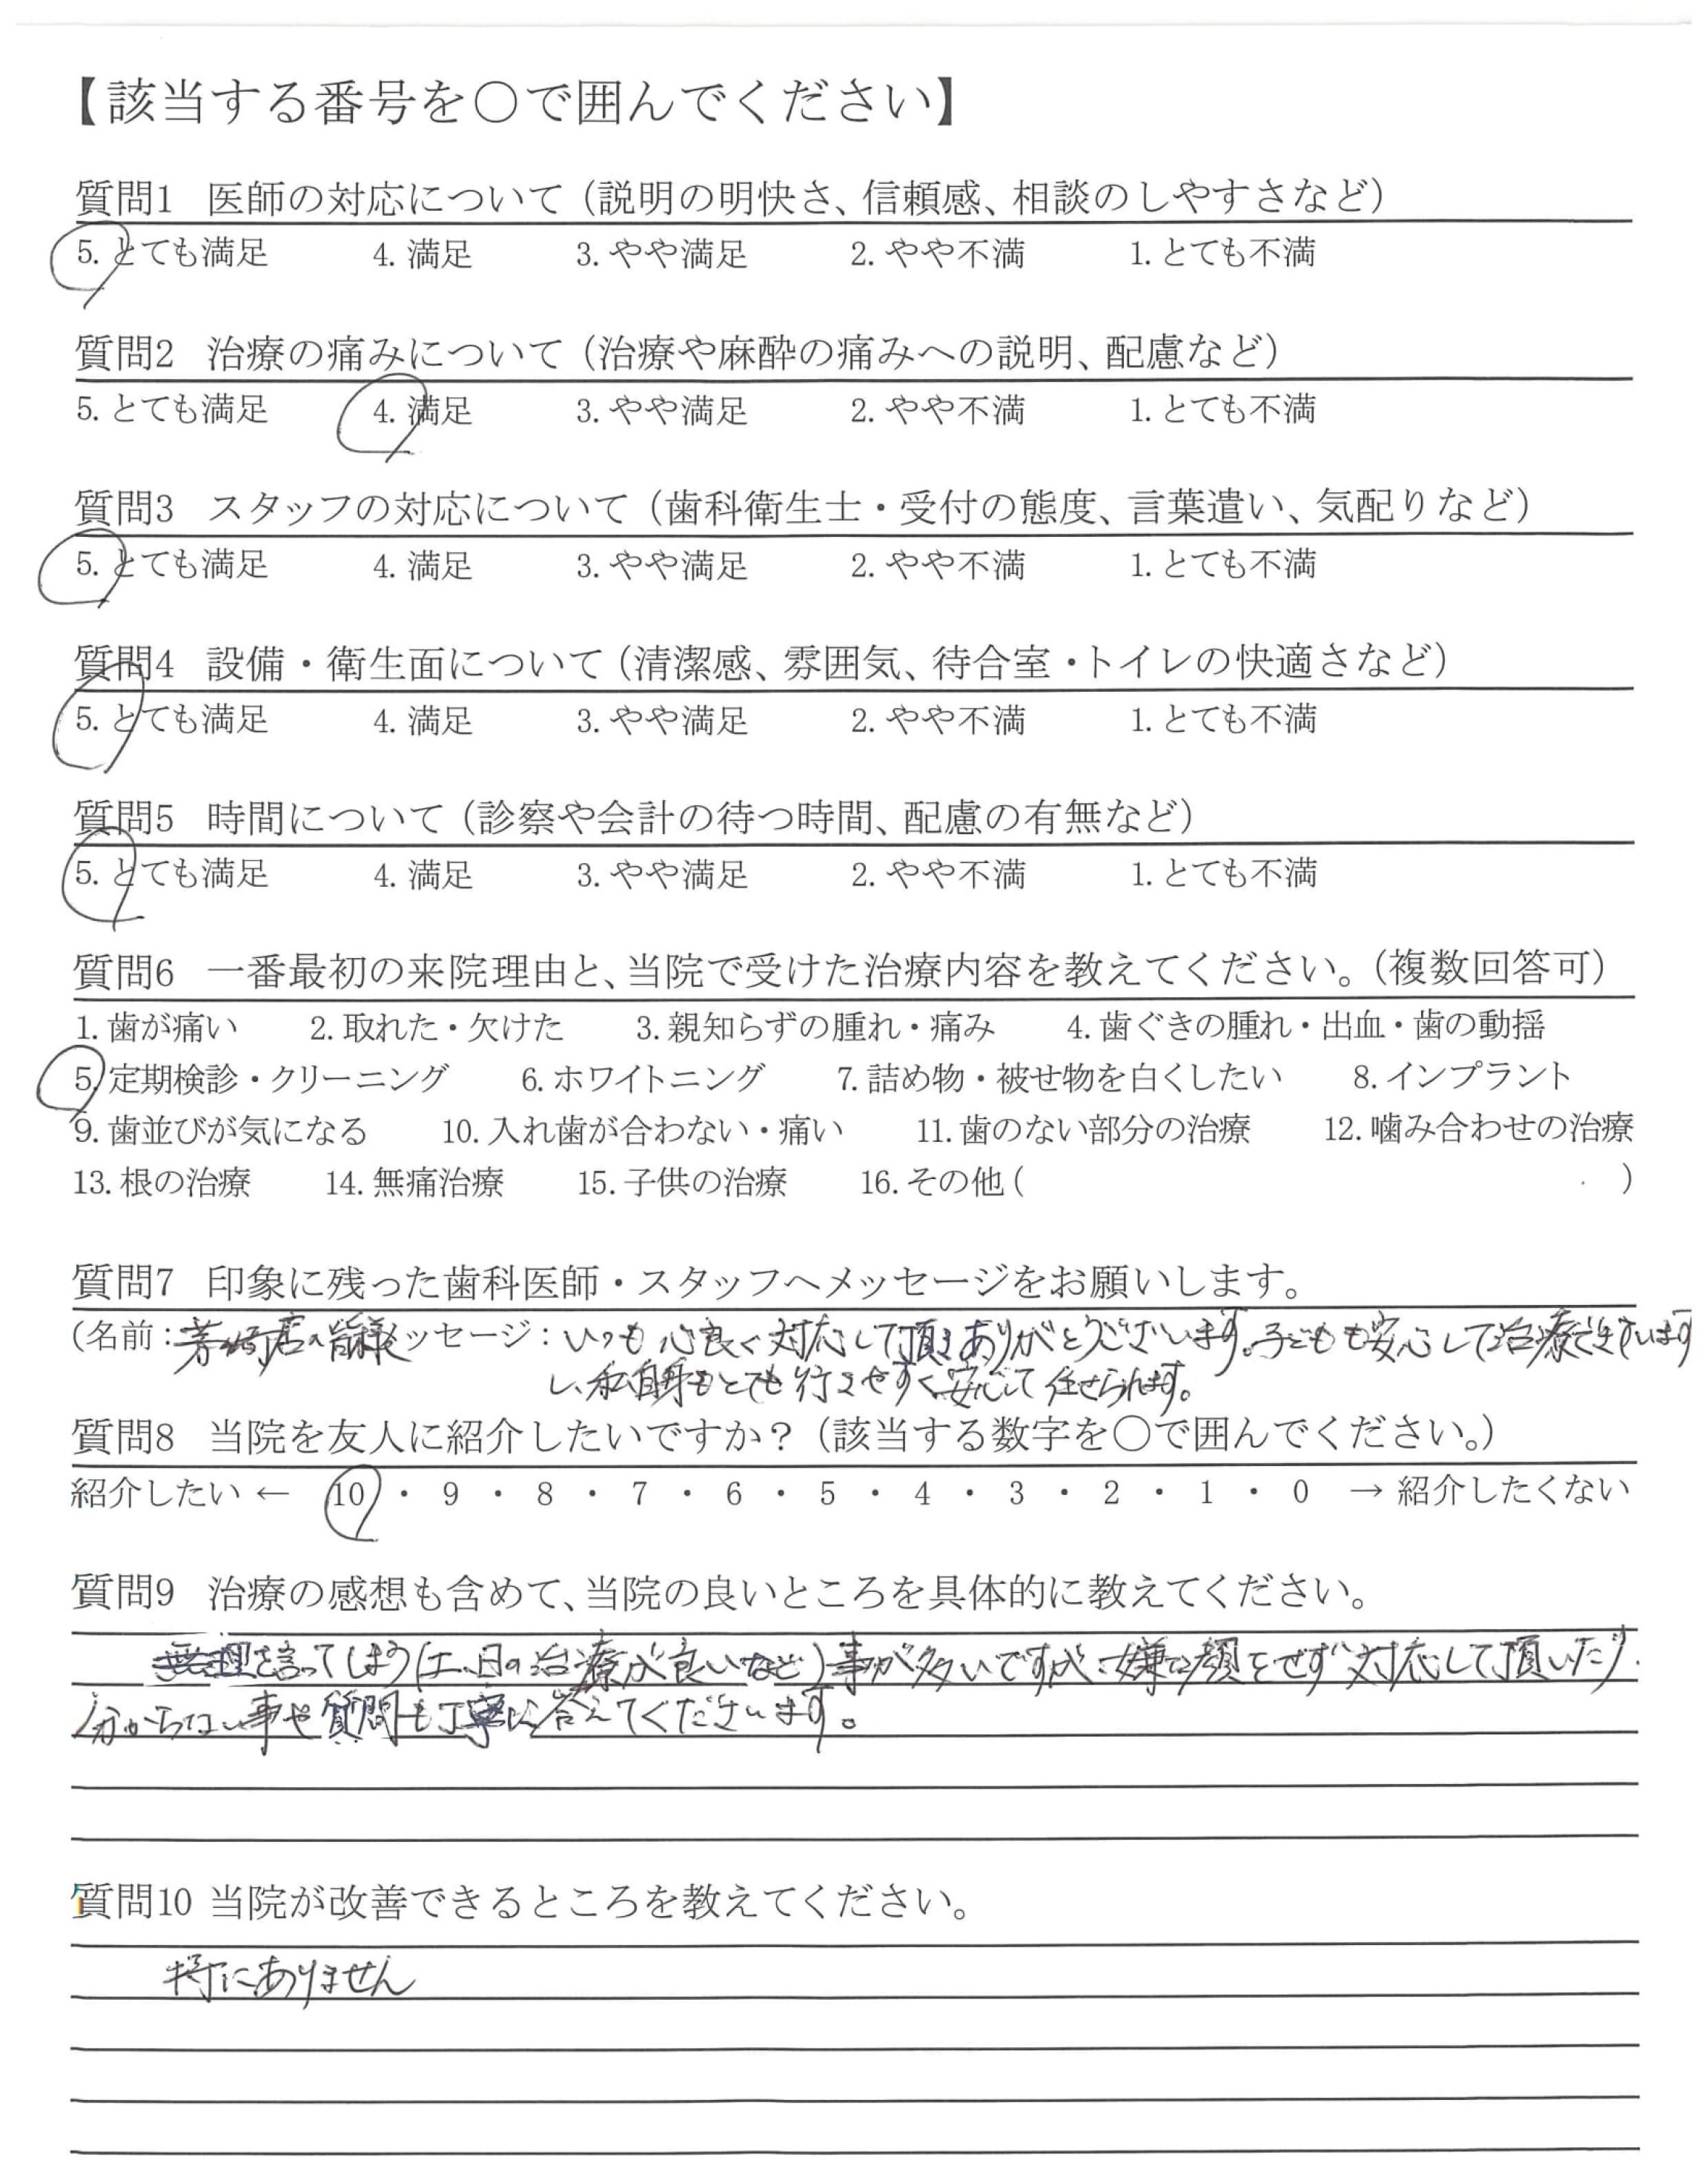 【該当する番号を○で囲んでください】
質問1 医師の対応について（説明の明快さ、信頼感、相談のしやすさなど）
5. とても満足 4. 満足 3. やや満足 2. やや不満 1. とても不満
質問2 治療の痛みについて（治療や麻酔の痛みへの説明、配慮など）
5. とても満足 4. 満足 3. やや満足 2. やや不満 1. とても不満
質問3 スタッフの対応について（歯科衛生士・受付の態度、言葉遣い、気配りなど）
5. とても満足 4. 満足 3. やや満足 2. やや不満 1. とても不満
質問4 設備・衛生面について（清潔感、雰囲気、待合室・トイレの快適さなど）
5. とても満足 4. 満足 3. やや満足 2. やや不満 1. とても不満
質問5 時間について（診察や会計の待つ時間、配慮の有無など）
5. とても満足 4. 満足 3. やや満足 2. やや不満 1. とても不満
質問6 一番最初の来院理由と、当院で受けた治療内容を教えてください。（複数回答可）
1. 歯が痛い 2. 取れた・欠けた 3. 親知らずの腫れ・痛み 4. 歯ぐきの腫れ・出血・歯の動揺
5. 定期検診・クリーニング 6. ホワイトニング 7. 詰め物・被せ物を白くしたい 8. インプラント
9. 歯並びが気になる 10. 入れ歯が合わない・痛い 11. 歯のない部分の治療 12. 噛み合わせの治療
13. 根の治療 14. 無痛治療 15. 子供の治療 16. その他（ ）
質問7 印象に残った歯科医師・スタッフへメッセージをお願いします。
（名前：店の皆様 メッセージ：いつも心良く対応して頂きありがとうございます。子どもも安心して治療できています
し、私自身もとても行きやすく安心して任せられます。
質問8 当院を友人に紹介したいですか？（該当する数字を○で囲んでください。）
紹介したい ← 10 ・ 9 ・ 8 ・ 7 ・ 6 ・ 5 ・ 4 ・ 3 ・ 2 ・ 1 ・ 0 → 紹介したくない
質問9 治療の感想も含めて、当院の良いところを具体的に教えてください。
無理を言ってしまう（土、日の治療が良いなど）事が多いですが、嫌な顔をせず対応して頂いたり、
分からない事や質問も丁寧に答えてくださいます。
質問10 当院が改善できるところを教えてください。
特にありません